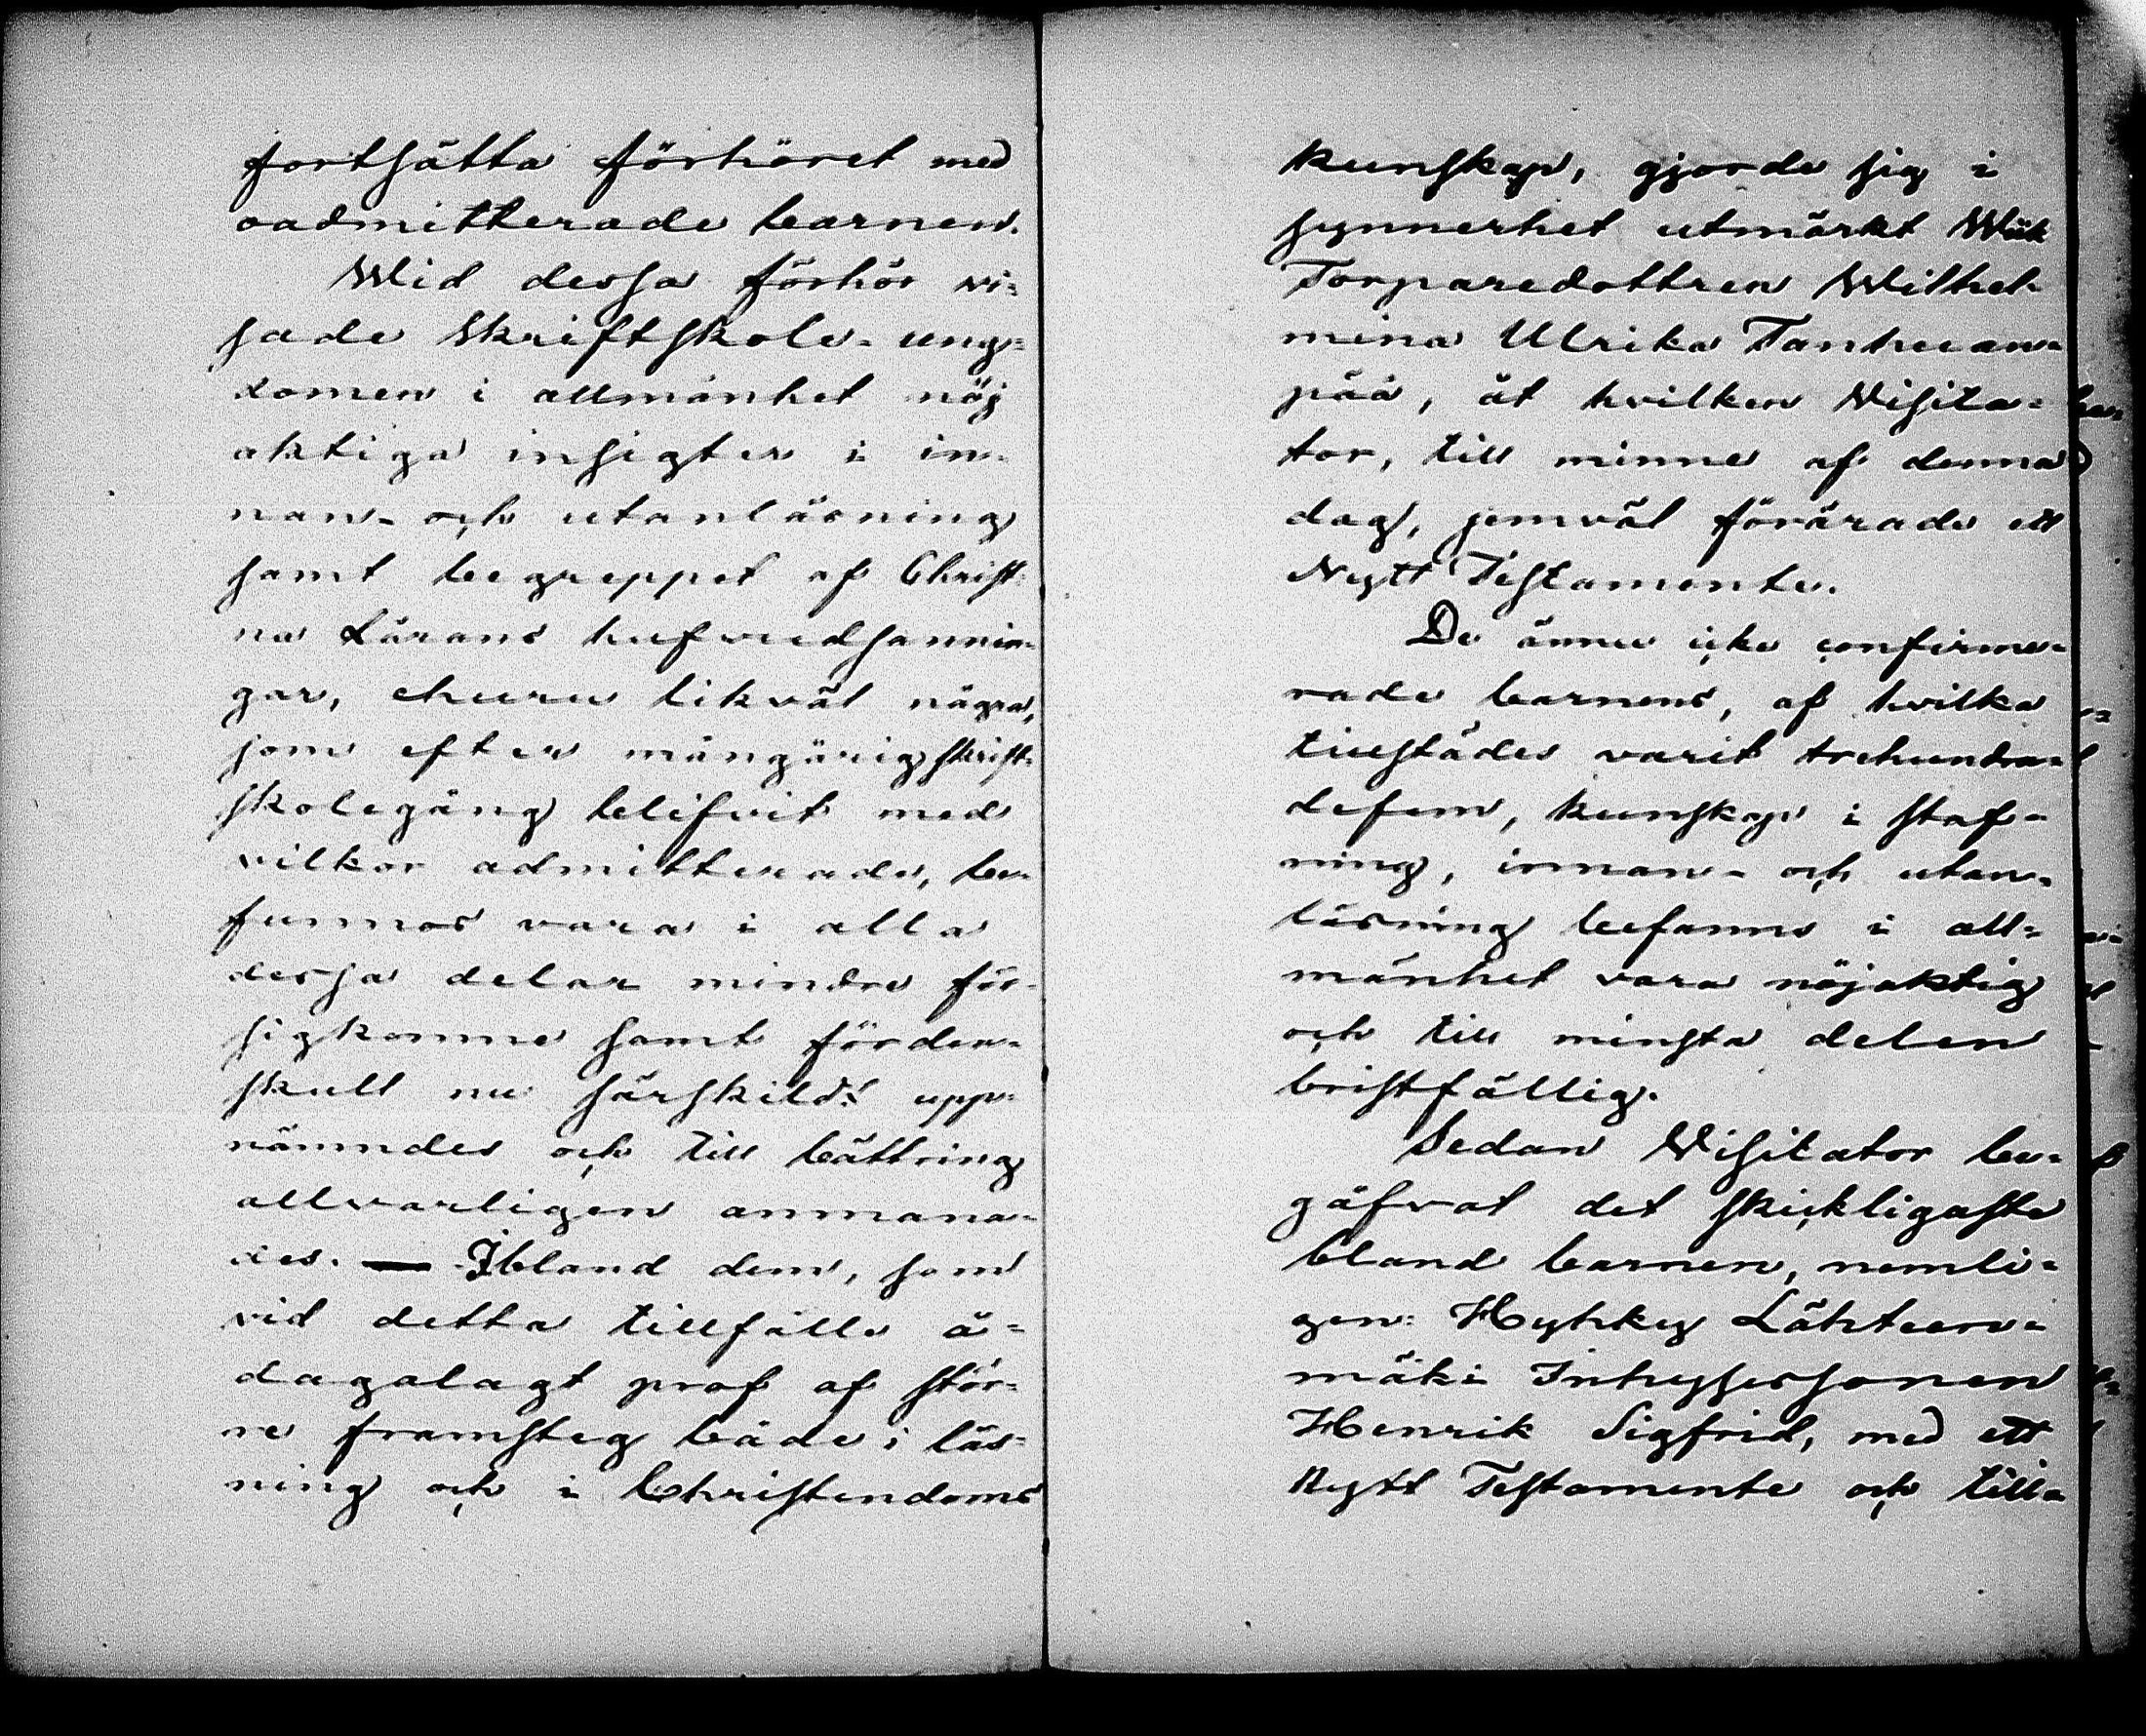 fortsätta förhöret med
oadmitterade barnen.
Wid dessa förhör wi=
sade Skriftskole-ung=
domen i allmänhet nöj
aktiga insigter i in=
nan- och utanläsning
samt begreppet af Christ=
na Lärans hufvudsannin=
gar, ehuru likväl några,
som efter mångårig skrift=
skolegång blifvit med
vilkor admitterade, be=
funnos vara i alla
dessa delar mindre för=
sigkomne samt förden=
skull nu särskildt upp=
nämndes och till bättring
allvarligen anmana=
des. — Ibland dem, som
vid detta tillfälle å=
dagalagt prof af stör=
re framsteg både i läs=
ning och i Christendoms
kunskap, gjorde sig i
synnerhet utmärkt
Torparedottren Wilhel=
mina Ulrika Tanhuan=
pää, åt hvilken Visita=
tor, till minne af denna
dag, jemväl förärade ett
Nytt Testamente.
De ännu icke confirme=
rade barnens, af hvilka
tillstädes varit trehundra=
defem, kunskap i staf=
ning, innan- och utan=
läsning befanns i all=
mänhet vara nöjaktig
och till minsta delen
bristfällig.
Sedan Visitator be=
gåfvat det skickligaste
bland barnen, nemli=
gen: Hyhky Lähteen=
mäki Inhysessonen
Henrik Sigfrid, med ett
Nytt Testamente och till=